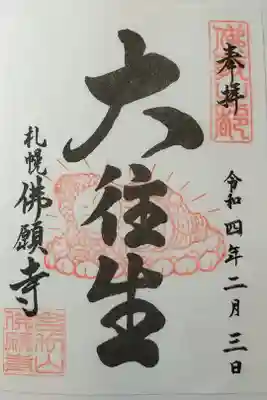 奉拝
令和四年二月三日
大往生
札幌佛願寺